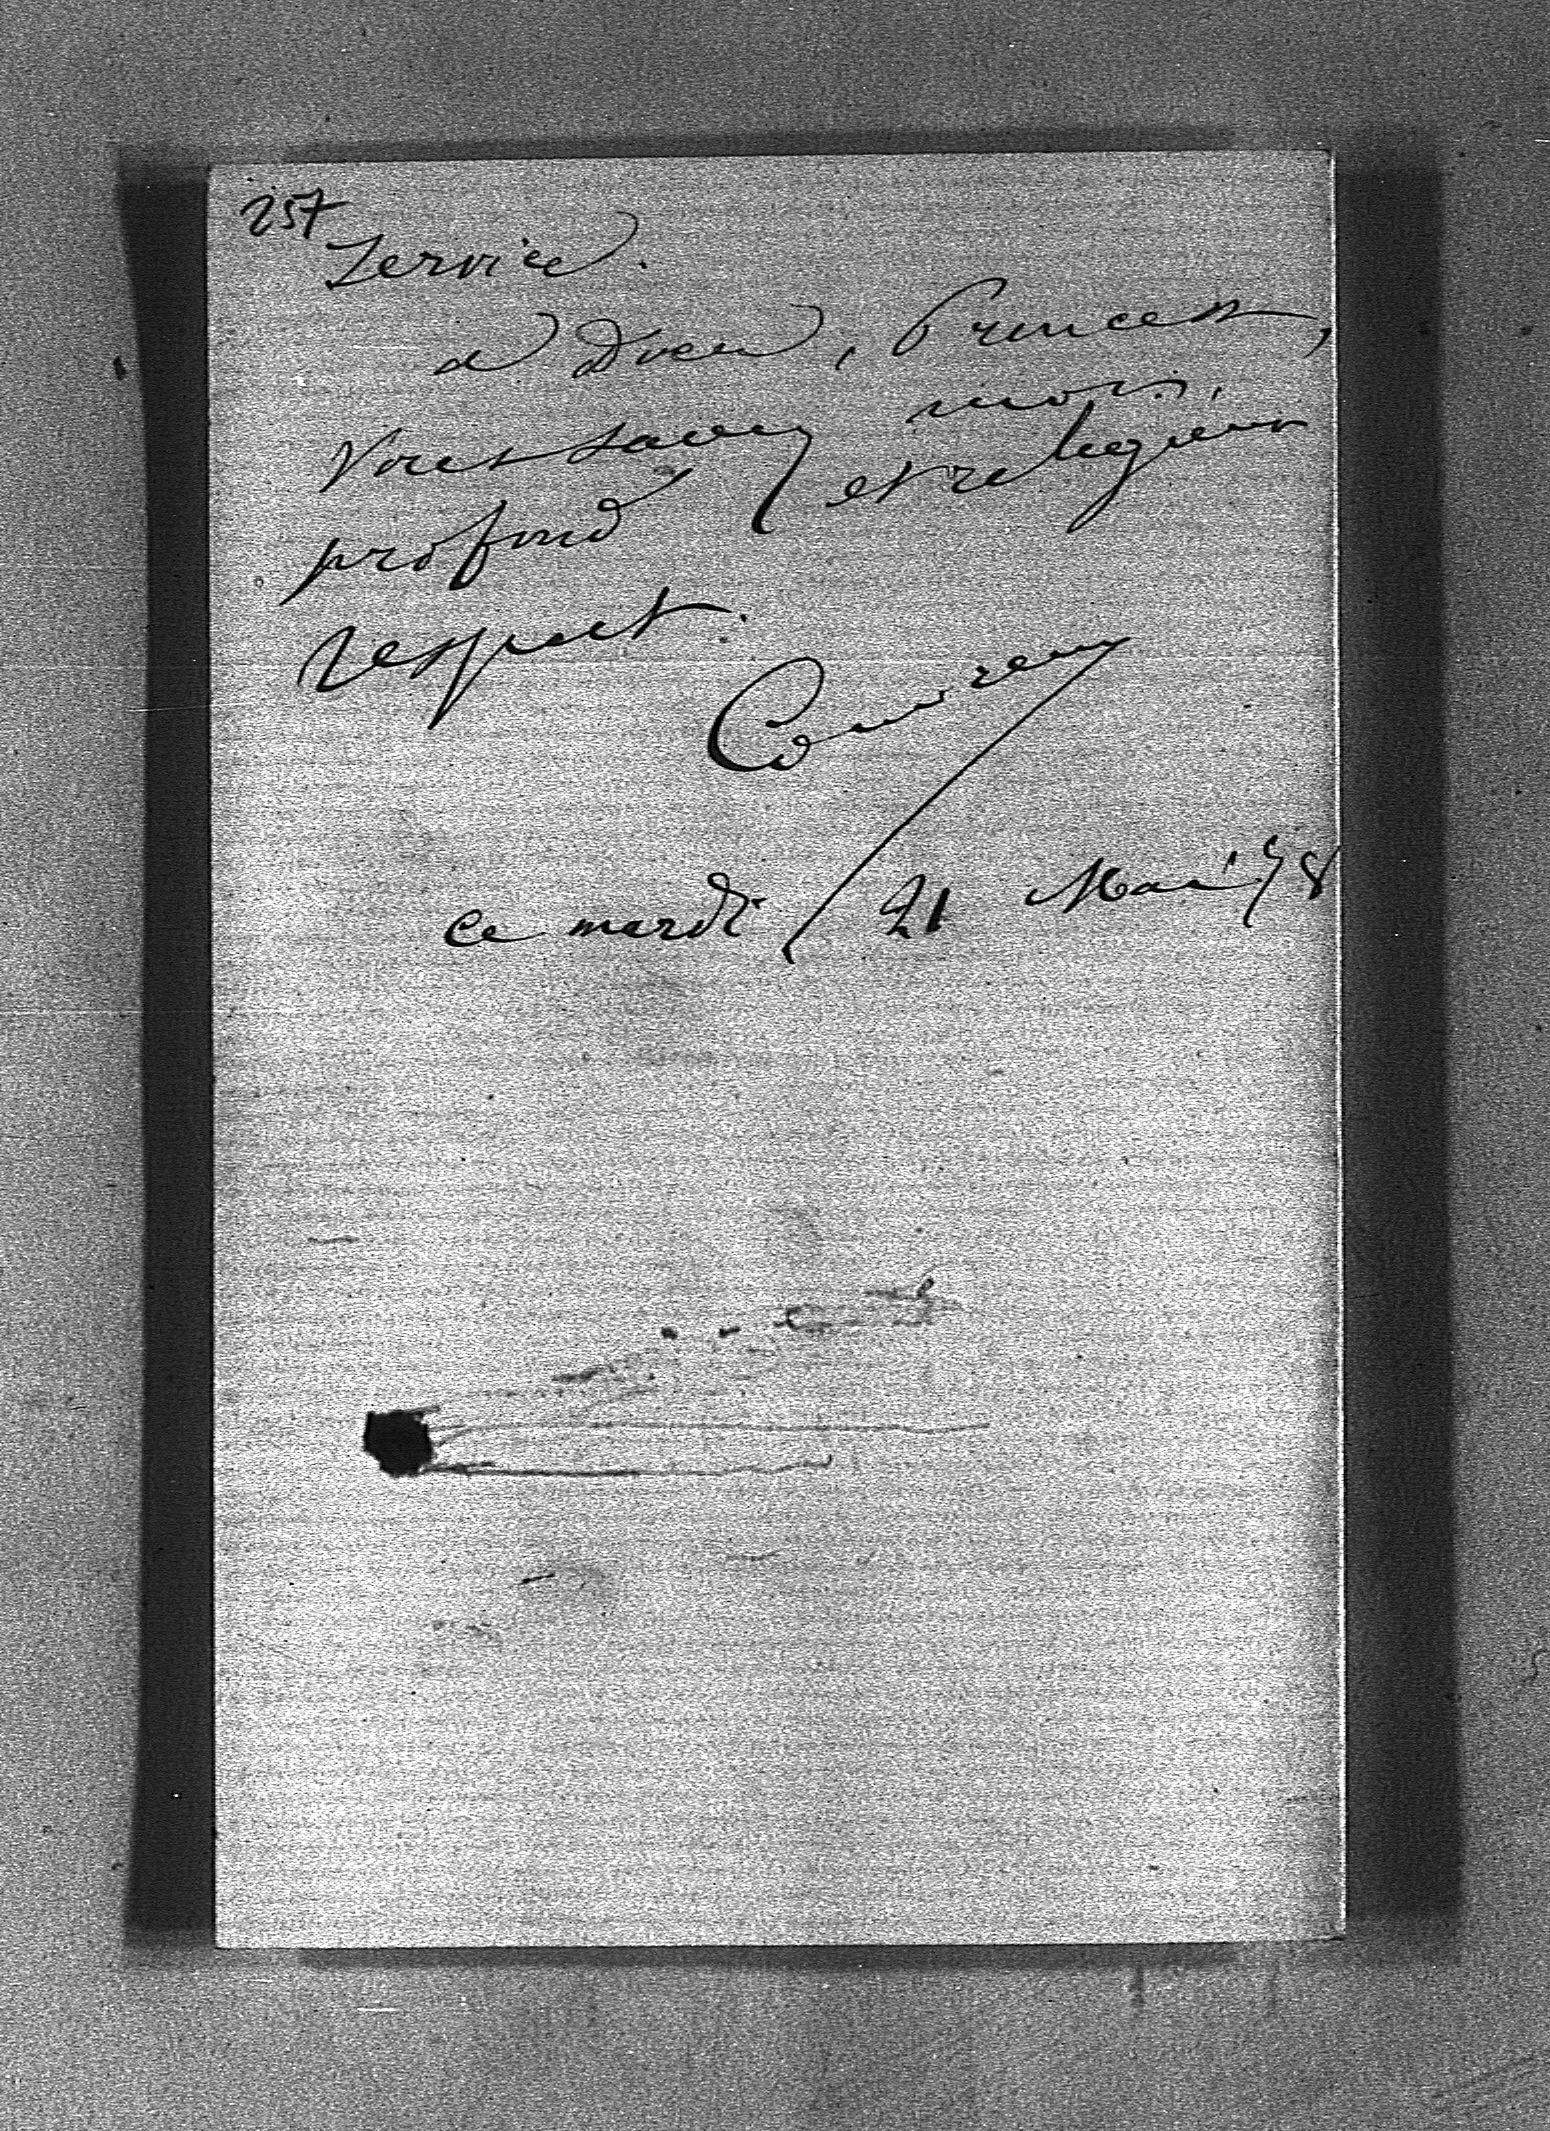 257
Service.
a Dieu, Princesse,
Vous savez mon
profond et religieux
respect.
ce mardi 21 Mai 78